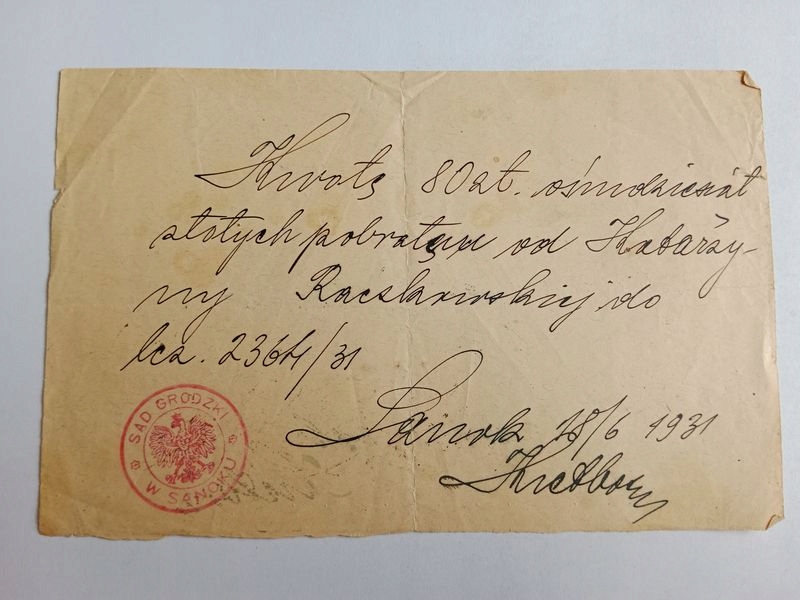 Kwotę 80 zł. ośmdziesiąt
złotych pobrałem od Katarzy-
ny Raczkowskiej do
lcz. 2364/31
Sanok 18/6 1931
SĄD GRODZKI
W SANOKU